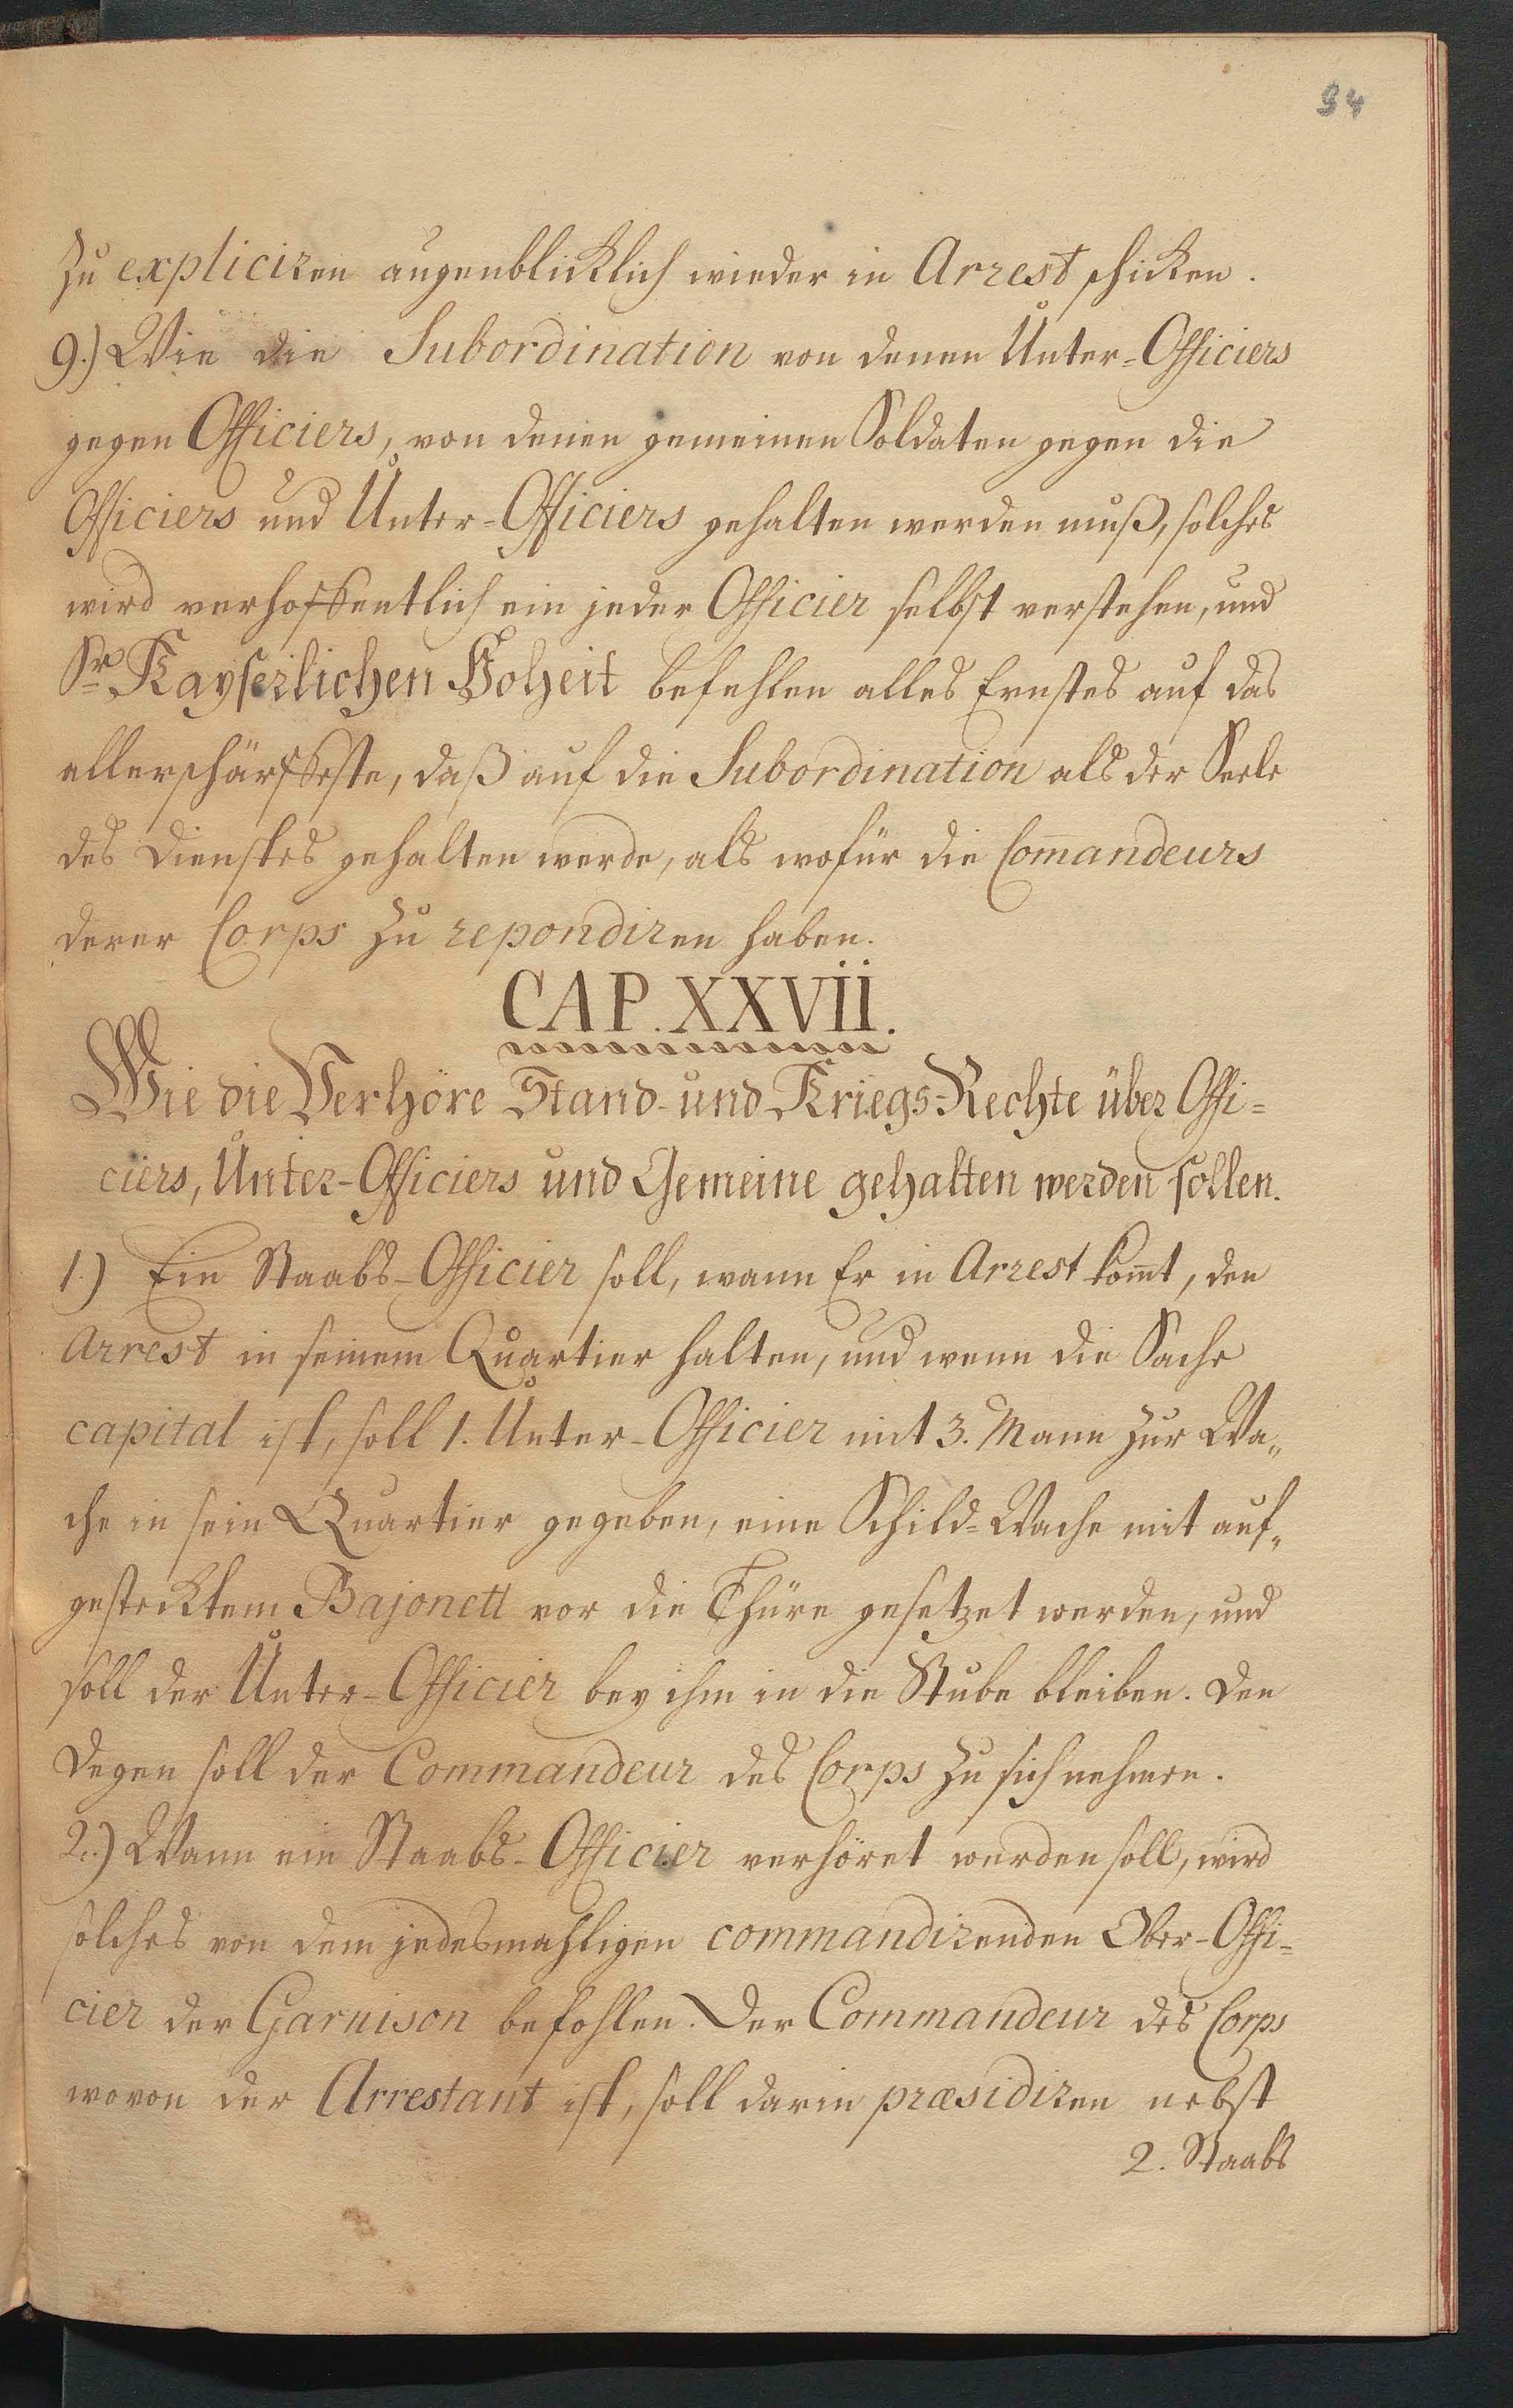 94
zu expliciren augenblicklich wieder in Arrest schicken.
9.) Wie die Subordination von denen Unter-Officiers
gegen Officiers, von denen gemeinen Soldaten gegen die
Officiers und Unter-Officiers gehalten werden muß, solches
wird verhoffentlich ein jeder Officier selbst verstehen, und
Sr. Kayserlichen Hoheit befehlen alles Ernstes auf das
allerschärffeste, daß auf die Subordination als der Seele
des Dienstes gehalten werde, als wofür die Com̄andeurs
derer Corps zu repondiren haben.
CAP. XXVII.
Wie die Verhöre Stand- und Kriegs-Rechte über Offi=
ciers, Unter-Officiers und Gemeine gehalten werden sollen.
1.) Ein Staabs-Officier soll, wann Er in Arrest kom̄t, den
Arrest in seinem Quartier halten, und wenn die Sache
capital ist, soll 1. Unter-Officier mit 3. Mann zur Wa„
che in sein Quartier gegeben, eine Schild=Wache mit auf„
gestecktem Bajonett vor die Thüre gesetzet werden, und
soll der Unter-Officier bey ihm in die Stube bleiben. Den
Degen soll der Commandeur des Corps zu sich nehmen.
2.) Wann ein Staabs-Officier verhöret werden soll, wird
solches von dem jedesmahligen commandirenden Ober-Offi=
cier der Garnison befohlen. Der Commandeur des Corps
wovon der Arrestant ist, soll darin præsidiren nebst
2. Staabs